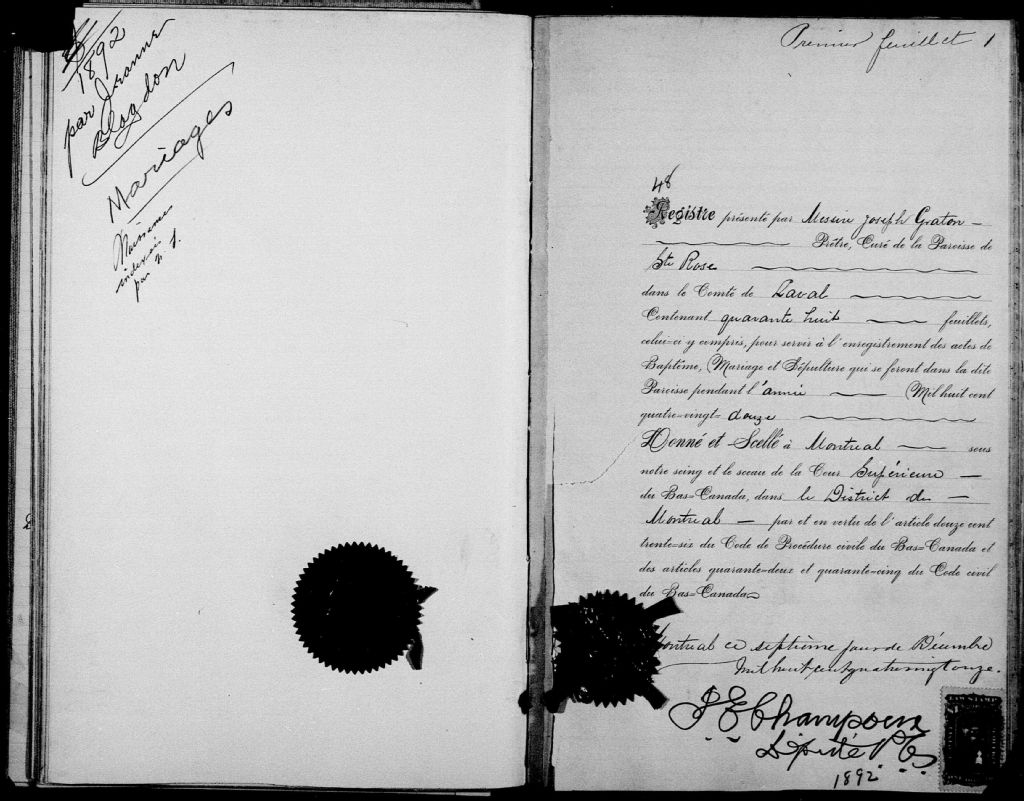 1892
par Jeanne
Blagdon
Mariages
index
par
1.
Premier feuillet 1
48
Registre présenté par Messire Joseph Graton
Prêtre, Curé de la Paroisse de
Ste Rose
dans le Comté de Laval
Contenant quarante huit feuillets,
celui-ci y compris, pour servir à l'enregistrement des actes de
Baptême, Mariage et Sépulture qui se feront dans la dite
Paroisse pendant l'année Mil huit cent
quatre-vingt-douze
Donné et Scellé à Montreal sous
notre seing et le sceau de la Cour Supérieure
du Bas-Canada, dans le District de
Montreal par et en vertu de l'article douze cent
trente-six du Code de Procédure civile du Bas-Canada et
des articles quarante-deux et quarante-cinq du Code civil
du Bas-Canada
Montreal ce septième jour de Décembre
Mil huit cent quatrevingt onze.
Député P.C.S.
1892